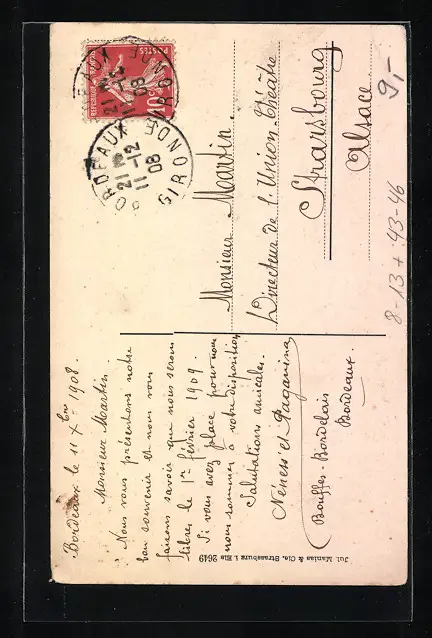 Bordeaux le 11 Xbre 1908.
Monsieur Martin.
Nous vous présentons notre
bon souvenir et nous vous
faisons savoir que nous serons
libres le 1er février 1909.
Si vous avez place pour nous
nous sommes à votre disposition
Salutations amicales.
et Paganina
(Bouffes-Bordelais
Bordeaux.
Jul. Manias & Cie. Strassburg i. Els 2649
Monsieur Martin.
Directeur de l'Union-Théâtre
Strarsbourg
Alsace.
9,-
8-13 + 43-46
REPUBLIQUE FRANÇAISE
POSTES
10c
BORDEAUX
21 11-12 08
GIRONDE
BORDEAUX
21 11-12 08
GIRONDE